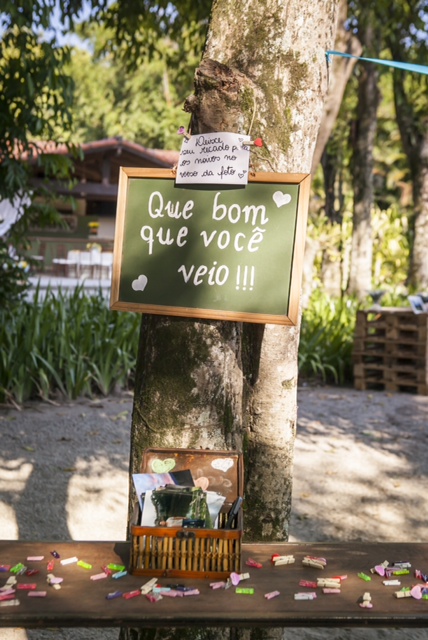 Deixe
seu recado p/
os noivos no
verso da foto
Que bom
que você
veio!!!